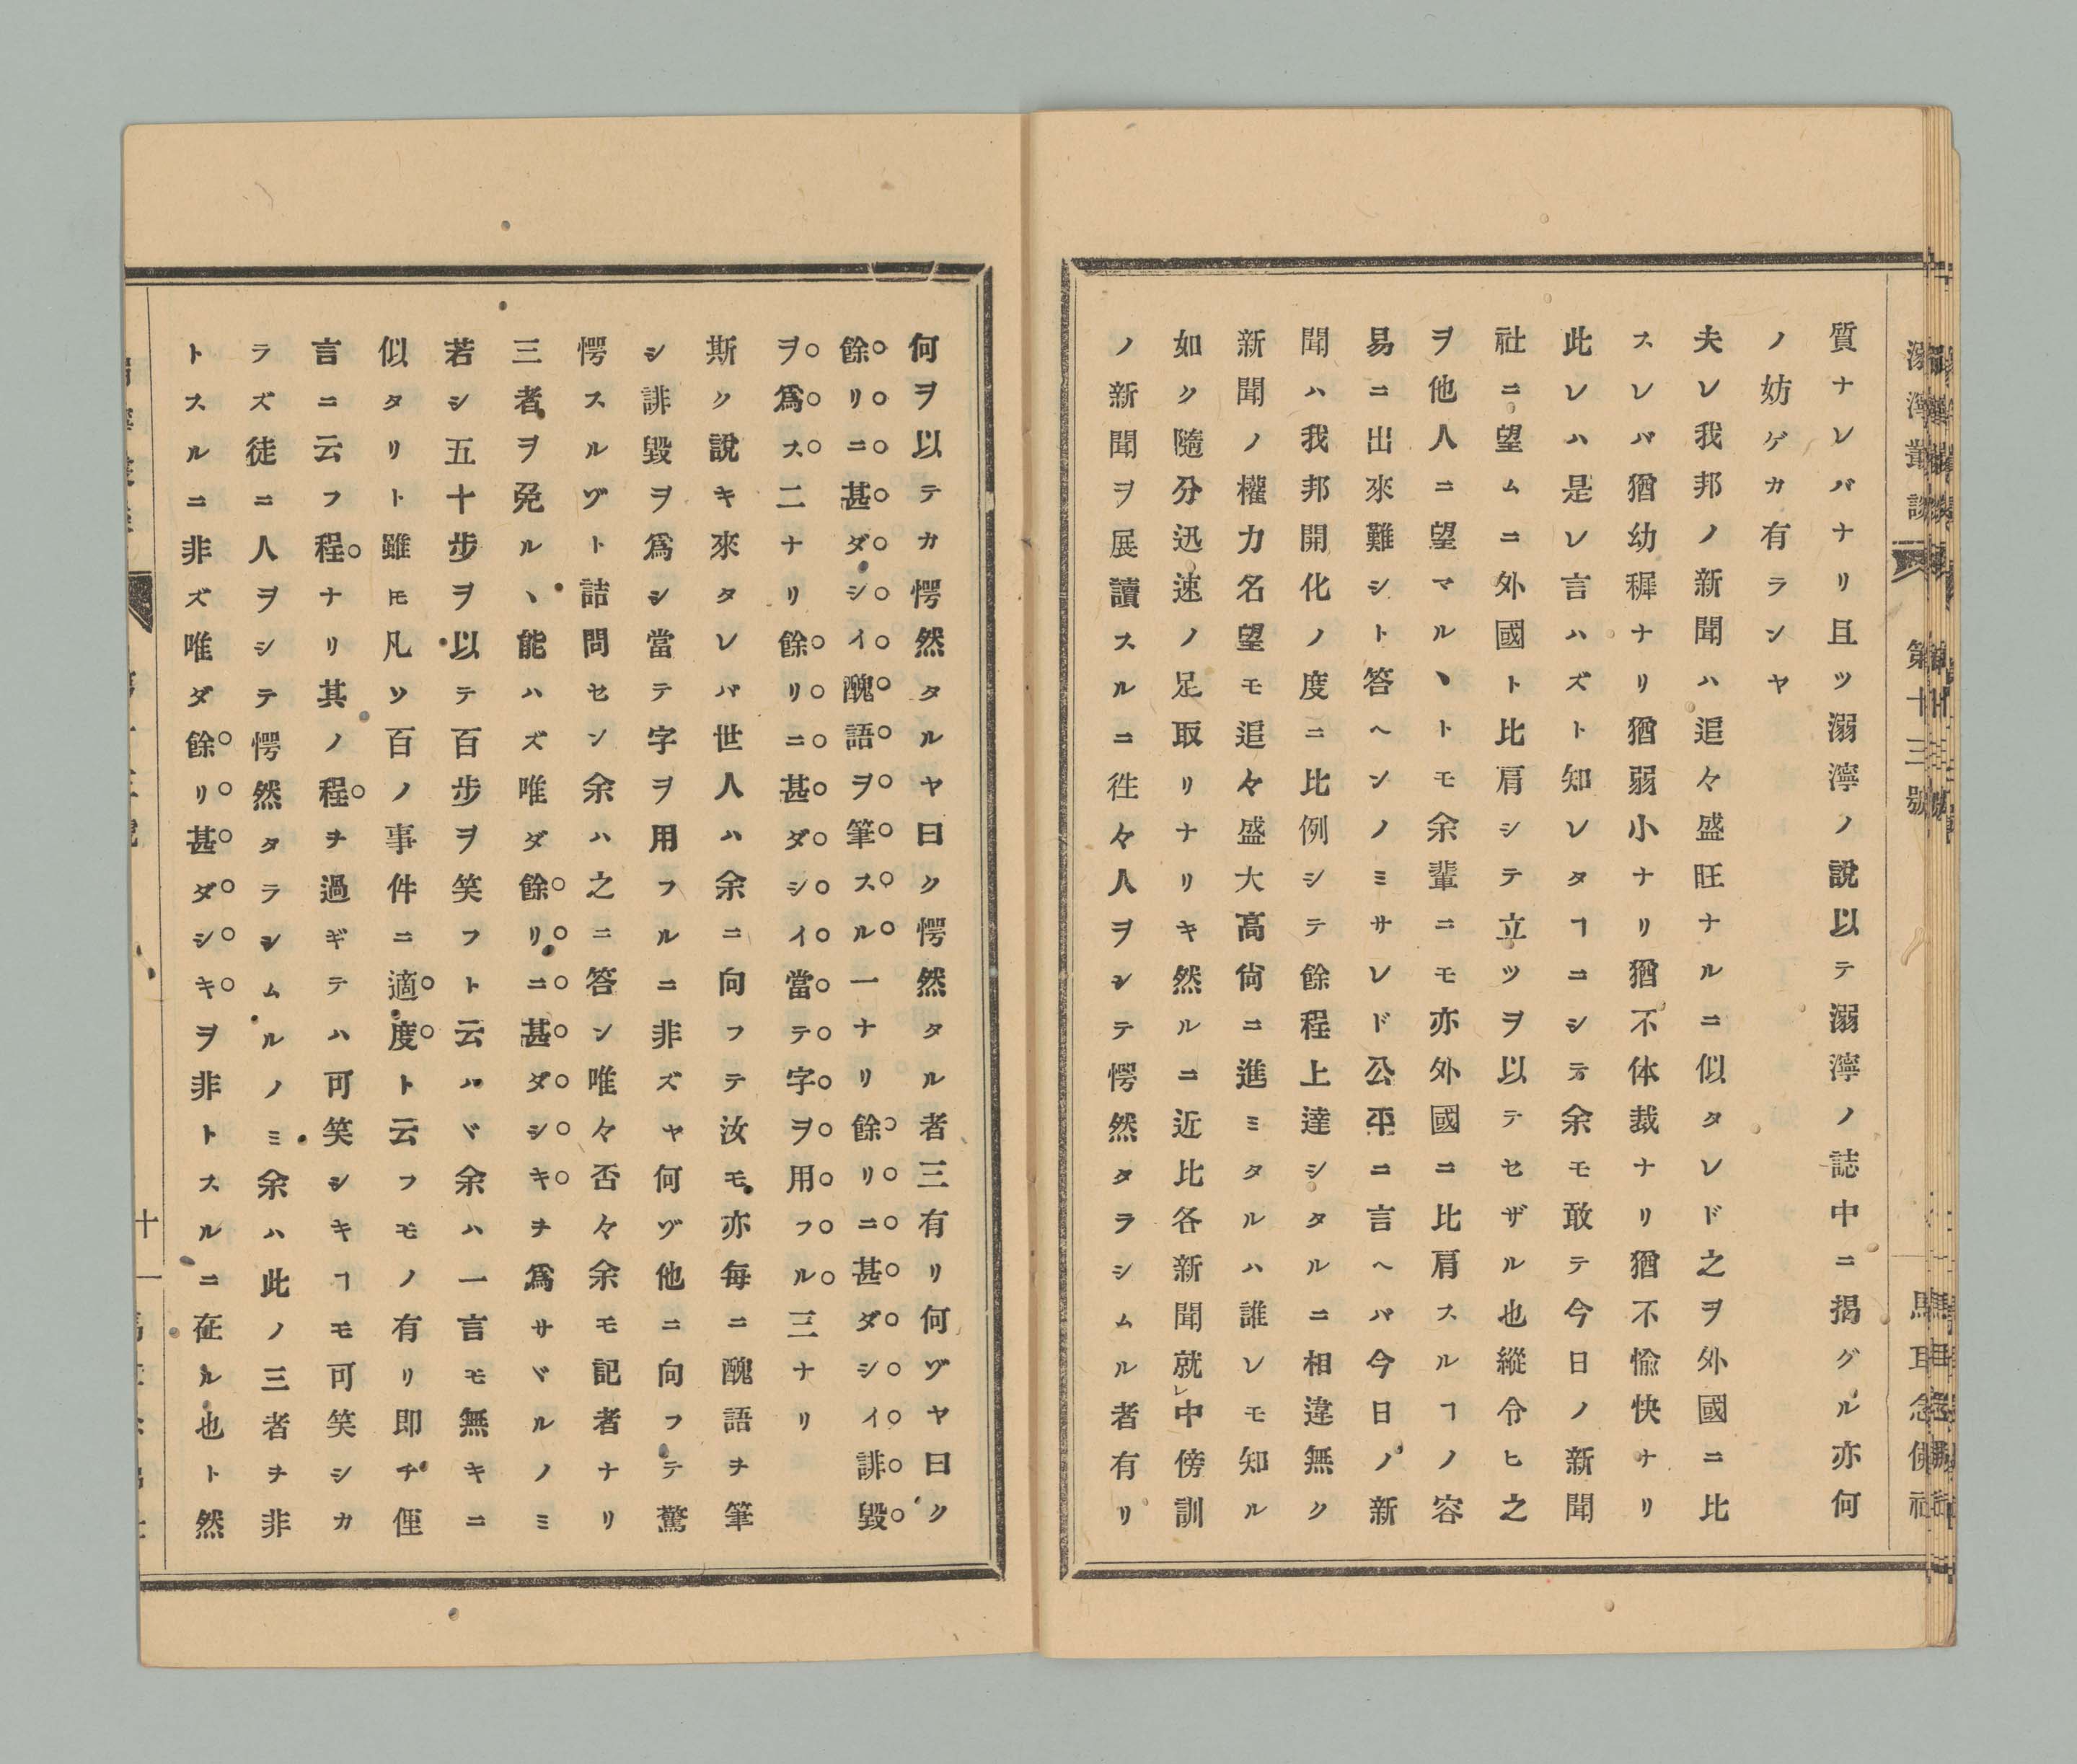 溺濘叢談 第十三號 馬耳念佛社
質ナレバナリ且ツ溺濘ノ說以テ溺濘ノ誌中ニ揭グル亦何
ノ妨ゲカ有ランヤ
夫レ我邦ノ新聞ハ追々盛旺ナルニ似タレド之ヲ外國ニ比
スレバ猶幼穉ナリ猶弱小ナリ猶不体裁ナリ猶不愉快ナリ
此レハ是レ言ハズト知レタヿニシテ余モ敢テ今日ノ新聞
社ニ望ムニ外國ト比肩シテ立ツヲ以テセザル也縱令ヒ之
ヲ他人ニ望マルヽトモ余輩ニモ亦外國ニ比肩スルヿノ容
易ニ出來難シト答ヘンノミサレド公平ニ言ヘバ今日ノ新
聞ハ我邦開化ノ度ニ比例シテ餘程上達シタルニ相違無ク
新聞ノ權力名望モ追々盛大高尙ニ進ミタルハ誰レモ知ル
如ク隨分迅速ノ足取リナリキ然ルニ近比各新聞就レ中傍訓
ノ新聞ヲ展讀スルニ徃々人ヲシテ愕然タラシムル者有リ
何ヲ以テカ愕然タルヤ曰ク愕然タル者三有リ何ヅヤ曰ク
餘リニ甚ダシイ醜語ヲ筆スル一ナリ餘リニ甚ダシイ誹毀
ヲ爲ス二ナリ餘リニ甚ダシイ當テ字ヲ用フル三ナリ
斯ク說キ來タレバ世人ハ余ニ向フテ汝モ亦每ニ醜語ヲ筆
シ誹毀ヲ爲シ當テ字ヲ用フルニ非ズヤ何ヅ他ニ向フテ驚
愕スルヅト詰問セン余ハ之ニ答ン唯々否々余モ記者ナリ
三者ヲ免ルヽ能ハズ唯ダ餘リニ甚ダシキヲ爲サヾルノミ
若シ五十步ヲ以テ百步ヲ笑フト云ハヾ余ハ一言モ無キニ
似タリト雖𪜈凡ソ百ノ事件ニ適度ト云フモノ有リ即チ俚
言ニ云フ程ナリ其ノ程ヲ過ギテハ可笑シキヿモ可笑シカ
ラズ徒ニ人ヲシテ愕然タラシムルノミ余ハ此ノ三者ヲ非
トスルニ非ズ唯ダ餘リ甚ダシキヲ非トスルニ在ル也ト然
十一